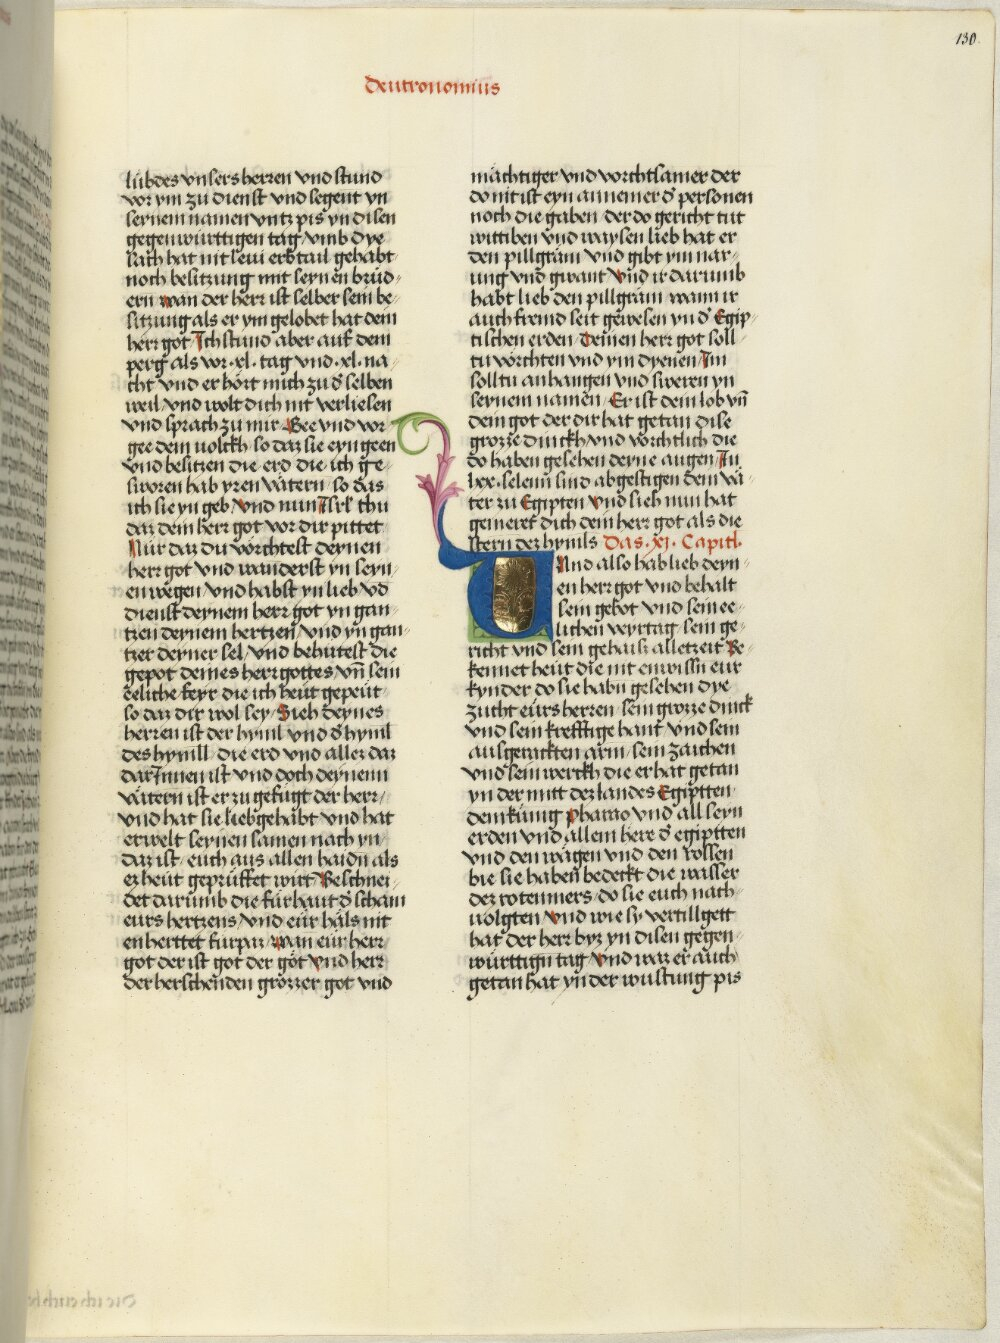 130.
Deutronomius
lubdes vnsers herren vnd stund
vor ym zu dienst vnd segent yn
seynem namen vntz pis yn disen
gegenwürttigen tag vmb dye
sach hat nit leui erbtail gehabt
noch besitzung mit seynen brüd
ern wan der herr ist selber sein be
sitzung als er ym gelobet hat dein
herr got Ich stund aber auf dem
perg als vor .xl. tag vnd .xl. na
cht vnd er hört mich zu d̕ selben
weil vnd wolt dich nit verliesen
vnd sprach zu mir Gee vnd vor
gee dem volckh so daz sie eyn geen
vnd besitzen die erd die ich ge
sworen hab yren vätern so das
ich sie yn geb vnd nun Isrl̄ thu
daz dein herr got vor dir pittet
Nür daz du vörchtest deynen
herr got vnd wanderst yn seyn
en wegen vnd habst yn lieb vn̄
dienst deynem herr got yn gan
tzen deynem hertzen vnd yn gan
tzer deyner sel vnd behütest die
gepot deines herr gottes vn̄ sein
eeliche feyr die ich heut gepeut
so daz dir wol sey Sieh deynes
herren ist der hyml vnd d̕ hyml
des hymll die erd vnd allez daz
dar Innen ist vnd doch deynenn
vätern ist er zu gefügt der herr
vnd hat sie lieb gehabt vnd hat
erwelt seynen samen nach yn
daz ist euch aus allen haidn̄ als
ez heut geprüffet wirt Beschnei
det darumb die fürhaut d̕ scham
eurs hertzens vnd eür häls nit
en herttet fürpaz wan eür herr
got der ist got der göt vnd herr
der herschenden grözzer got vnd
mächtiger vnd vorchtsamer der
do nit ist eyn annemer d̕ personen
noch die gaben der do gericht tut
wittiben vnd waysen lieb hat er
den pillgram vnd gibt ym nar
ung vnd gwant vnd ir darumb
habt lieb den pillgram wann ir
auch fremd seit gewesen yn d̕ Egip
tischen erden Deinen herr got soll
tu vörchten vnd ym dyenen Im
soll tu anhangen vnd sweren yn
seynem namen Er ist dein lob vn̄
dein got der dir hat getan dise
grozze dinckh vnd vörchtlich die
do haben gesehen deyne augen In
lxx. selenn sind abgestigen dein vä
ter zu Egipten vnd sieh nun hat
gemeret dich dein herr got als die
stern dez hymls Das .xi. Capitl.
Und also hab lieb deyn
en herr got vnd behalt
sein gebot vnd sein ee
lichen veyrtag sein ge
richt vnd sein gehaiz alletzeit Be
kennet heut die nit enwissn eur
kynder do sie habn̄ gesehen dye
zucht eürs herren sein grozze dinck
vnd sein krefftige hant vnd sein
ausgerackten arm sein zaichen
vnd sein werckh die er hat getan
yn der mitt dez landes Egiptten
dem künig pharao vnd all seyn
erden vnd allem here d̕ egiptten
vnd den wägen vnd den rossen
bie sie haben bedeckt die wasser
dez roten mers do sie euch nach
volgten vnd wie sy vertillgett
hat der herr byz yn disen gegen
württign̄ tag vnd waz er auch
getan hat yn der wustung pis